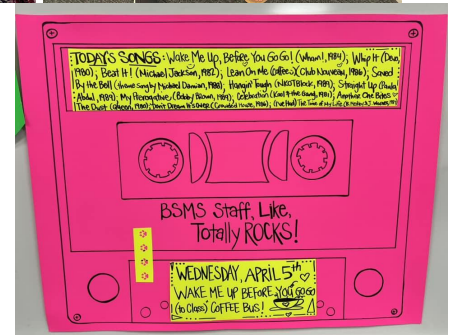 TODAY'S SONGS: Wake Me Up, Before You Go Go! (Wham!, 1984); Whip It (Devo,
1980); Beat It! (Michael Jackson, 1982); Lean On Me (Club Nouveau, 1986); Saved
By the Bell (theme song by Michael Damian, 1988); Hangin' Tough (NKOTBlock, 1989); Straight Up (Paula
Abdul, 1989); My Prerogative (Bobby Brown, 1989); Celebration (Kool & the Gang, 1981); Another One Bites
The Dust (Queen, 1980); Don't Dream It's Over (Crowded House, 1986); (I've Had) The Time of My Life
BSMS Staff, Like,
Totally ROCKS!
WEDNESDAY, APRIL 5th
WAKE ME UP BEFORE YOU GO GO
(to Class) COFFEE BUS!